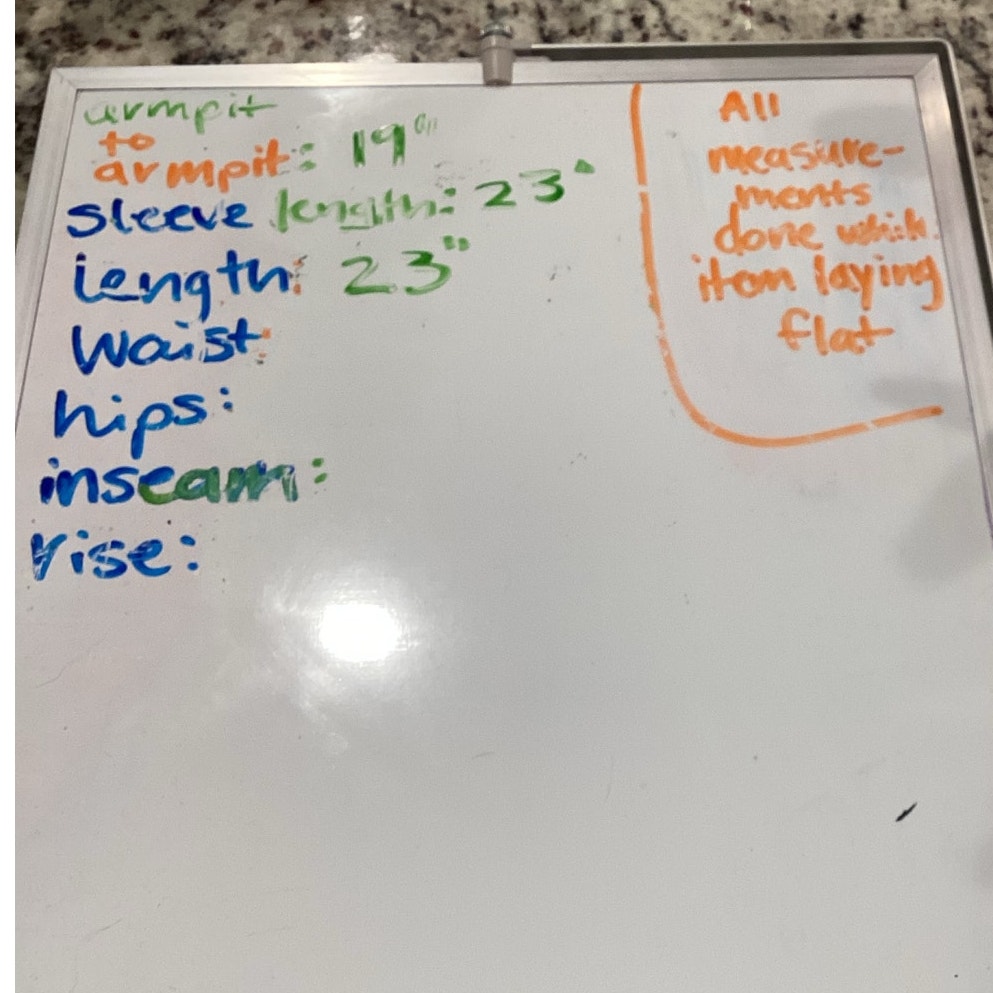 armpit
to
armpit: 19"
sleeve length: 23"
length: 23"
Waist:
hips:
inseam:
rise:
All
measure-
ments
done which
item laying
flat